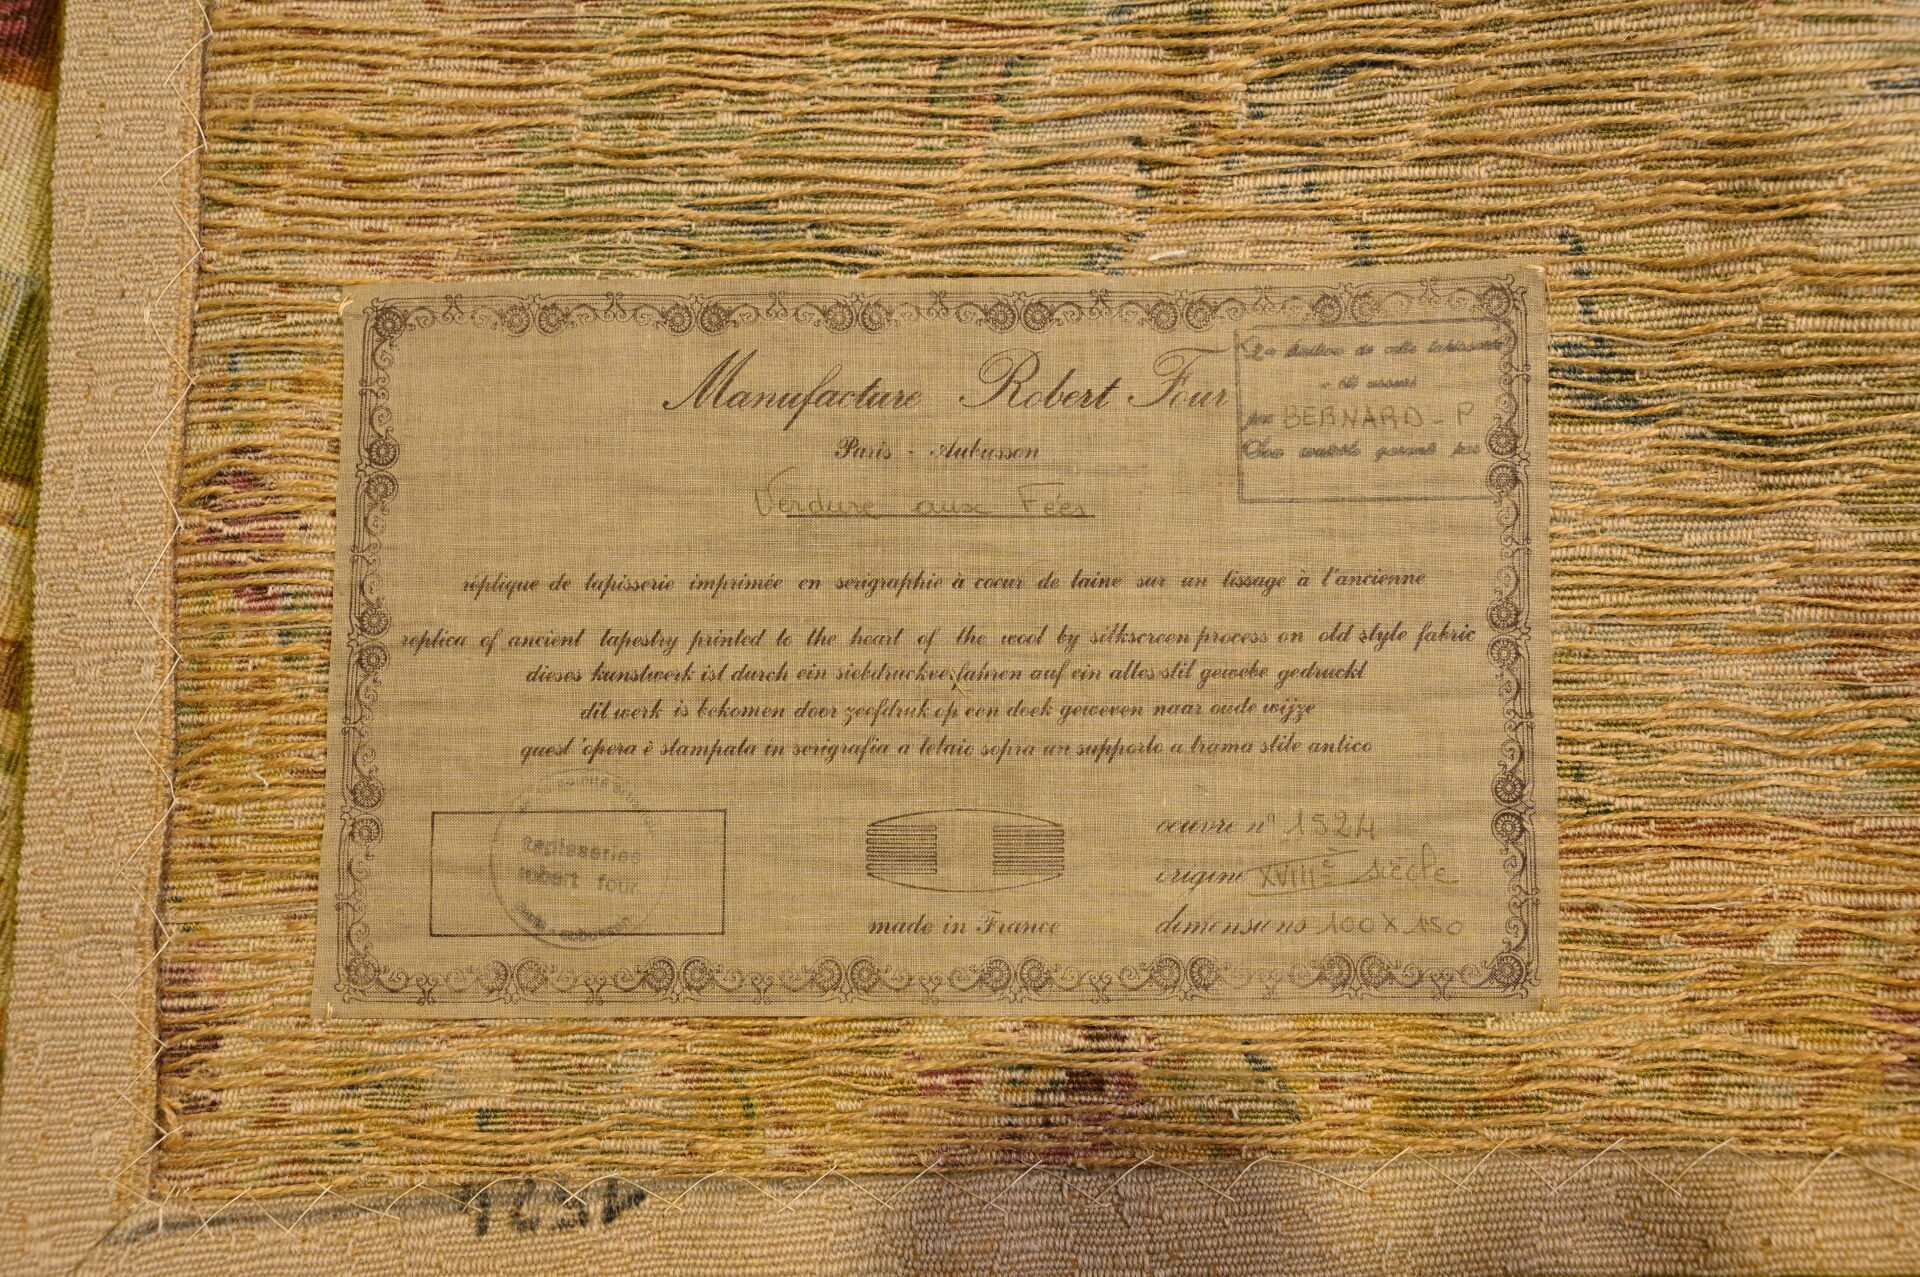 Manufacture Robert Four
Paris - Aubusson
Verdure aux Fées
La finition de cette tapisserie
a été assuré
par BERNARD - P
réplique de tapisserie imprimée en serigraphie à coeur de laine sur un tissage à l'ancienne
replica of ancient tapestry printed to the heart of the wool by silkscreen process on old style fabric
dieses kunstwerk ist durch ein siebdruckverfahren auf ein altes stil gewebe gedruckt
dit werk is bekomen door zeefdruk op een doek geweven naar oude wijze
quest 'opera è stampata in serigrafia a telaio sopra un supporto a trama stile antico
tapisseries
robert four
paris - aubusson
made in France
oeuvre n° 1524
origine XVIIIe siècle
dimensions 100 X 150
1524